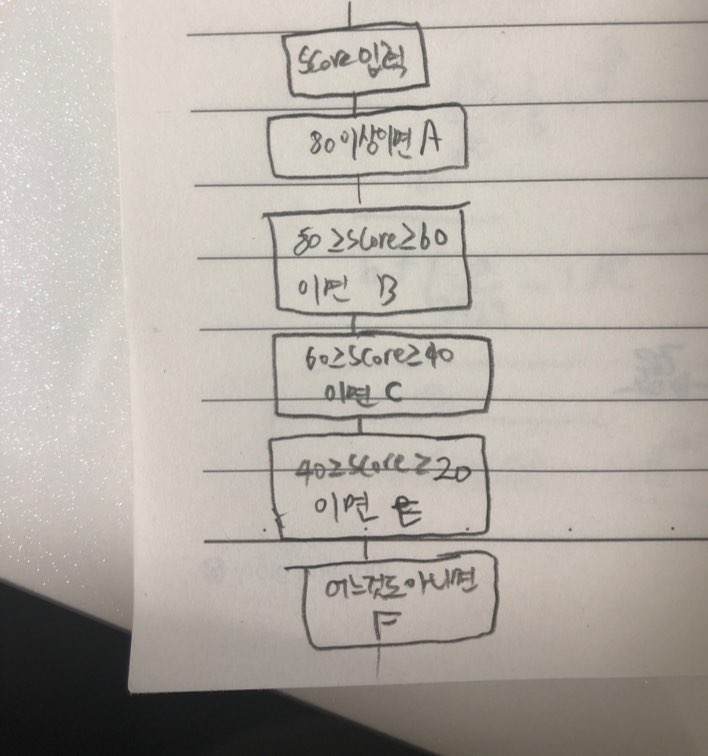 score입력
80이상이면 A
80≥score≥60
이면 B
60≥score≥40
이면 C
40≥score≥20
이면 E
어느것도아니면
F